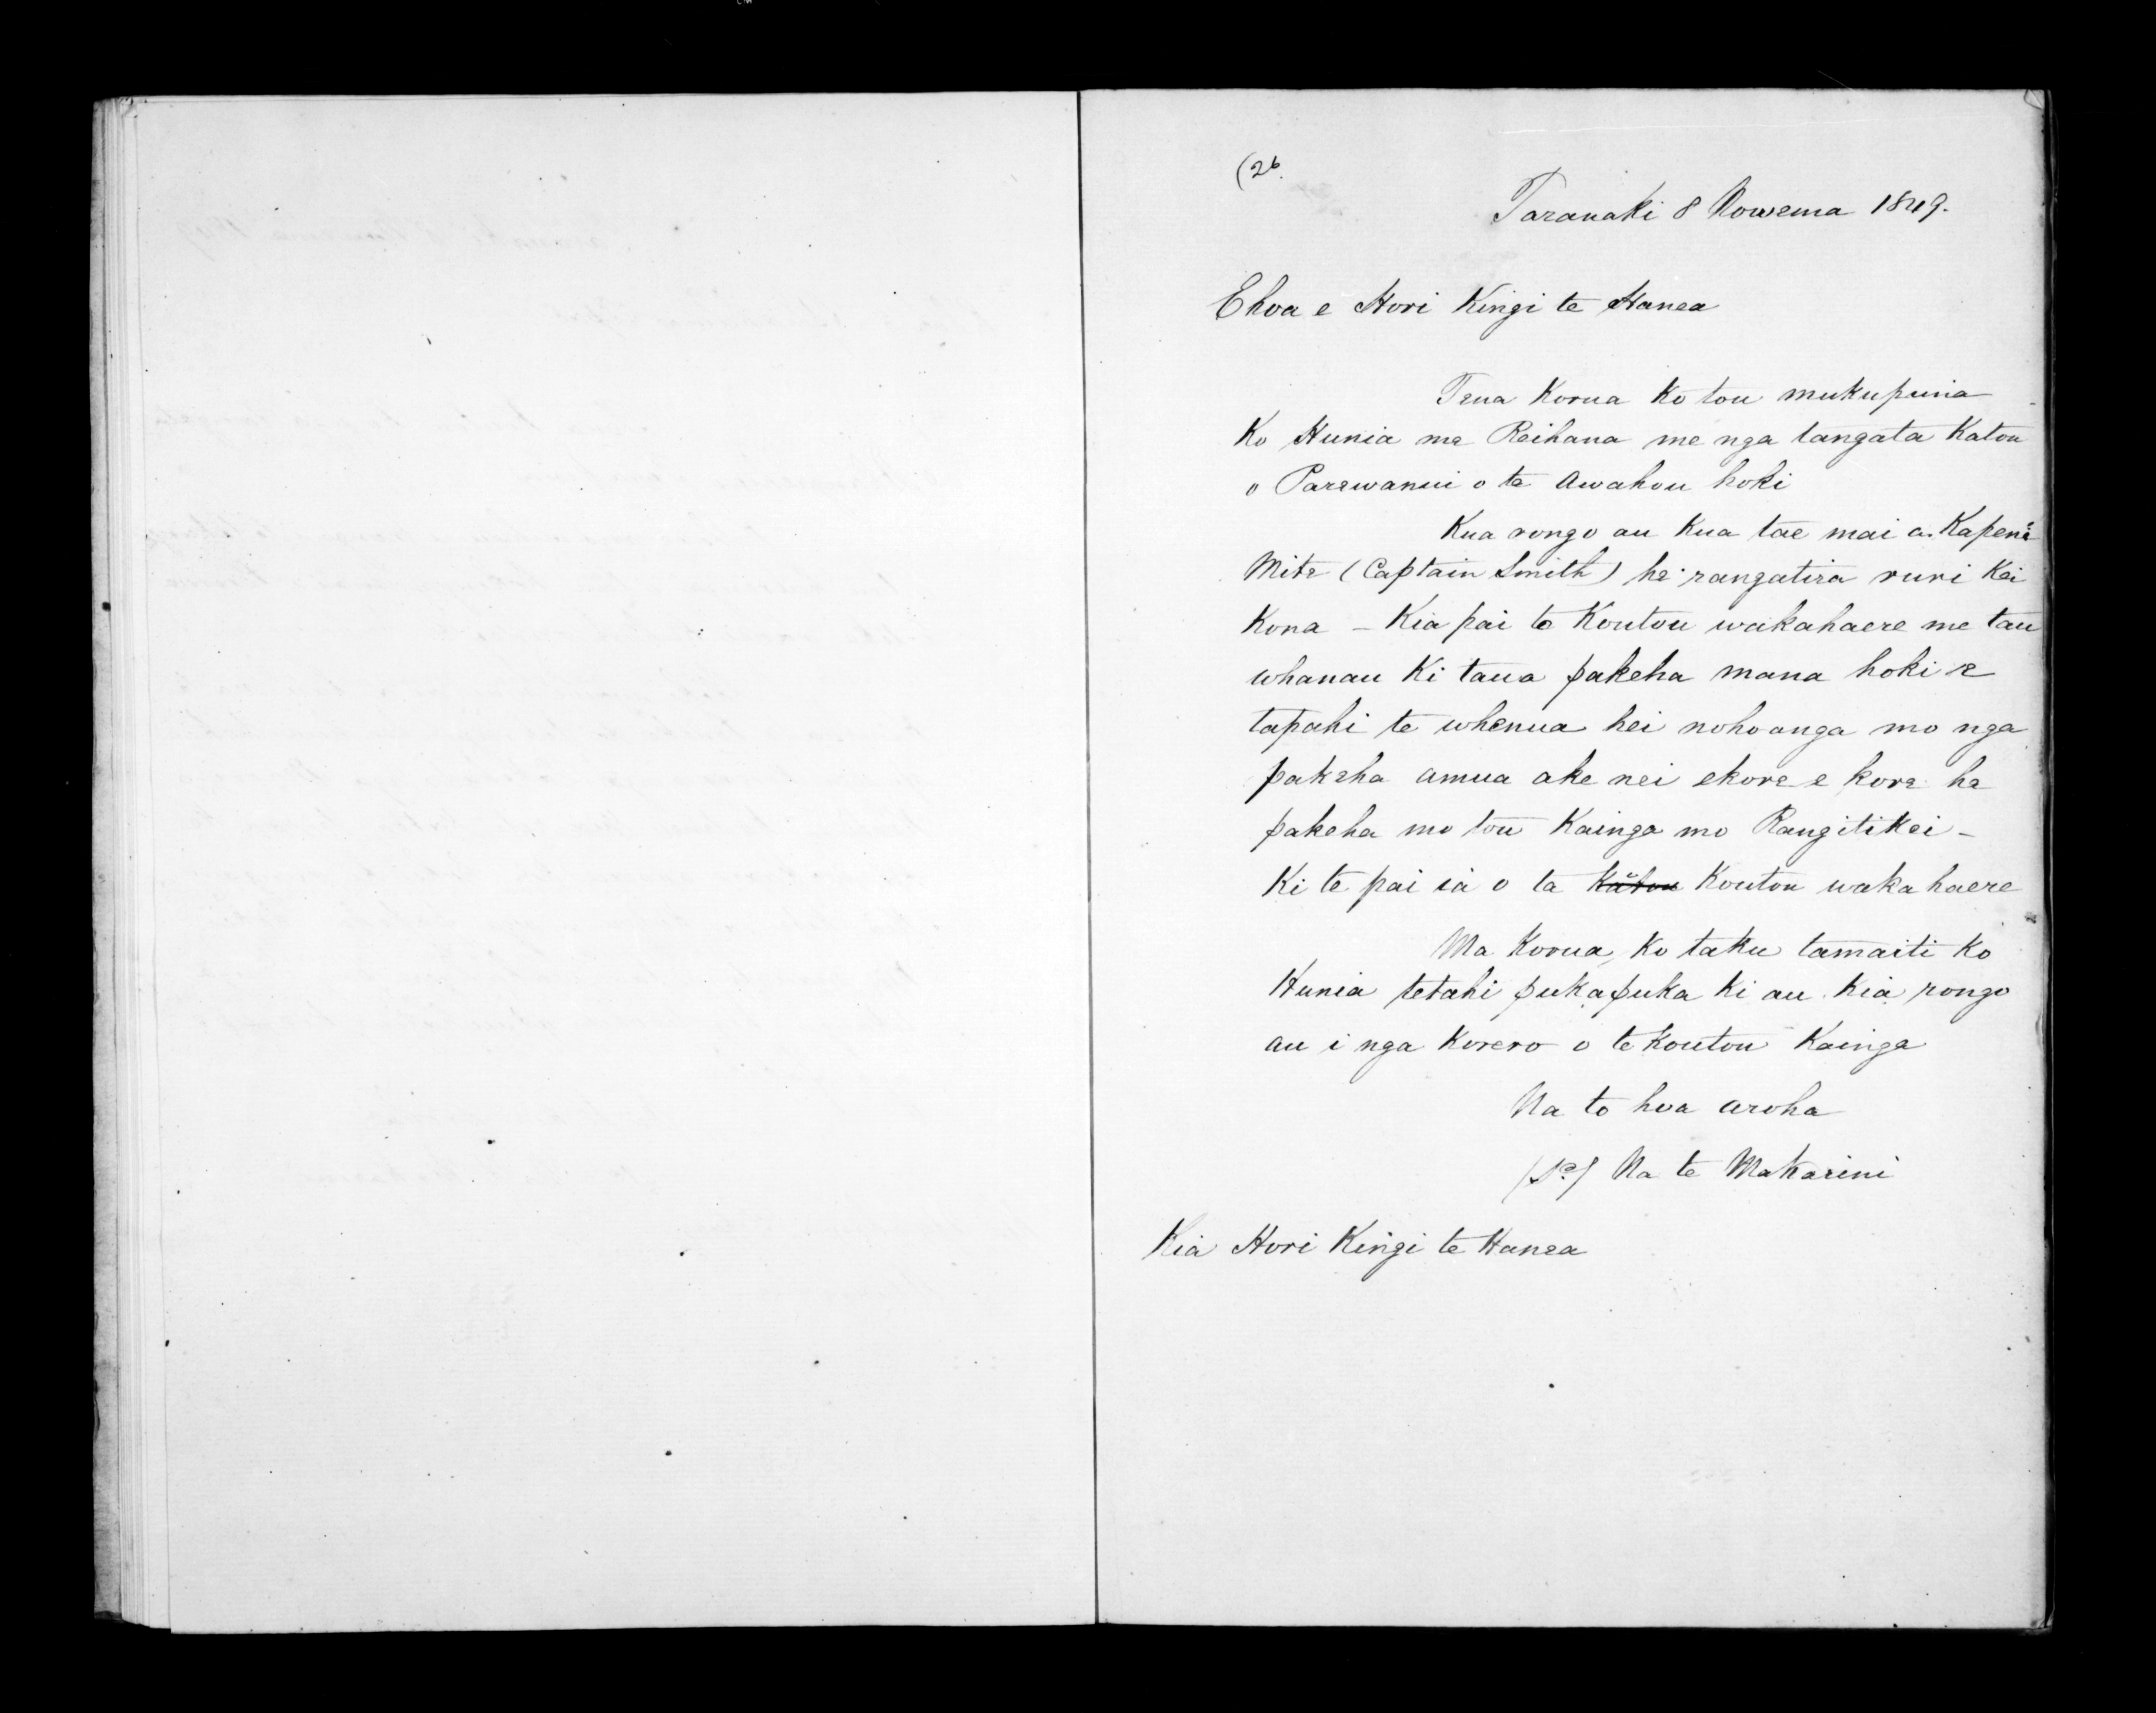 (26.
Taranaki 8 Nowema 1849.
Ehoa e Hori Kingi te Hanea
Tena Korua Ko tou mukupuna
Ko Hunia me Reihana me nga tangata Katou
o Parewanui o te Awahou hoki
Kua rongo au Kua tae mai a. Kapene
Mite (Captain Smith) he rangatira ruri Kei
Kona – Kia pai to Koutou wakahaere me tau
whanau Ki taua pakeha mana hoki e
tapahi te whenua hei nohoanga mo nga
pakeha amua ake nei ekore e kore he
pakeha mo tou Kainga mo Rangitikei –
Ki te pai ia o ta Katou Koutou waka haere
Ma Korua Ko taku tamaiti Ko
Hunia tetahi pukapuka Ki au Kia rongo
au i nga Korero o te Koutou Kainga
Na to hoa aroha
Na te Makarini
Kia Hori Kingi te Hanea